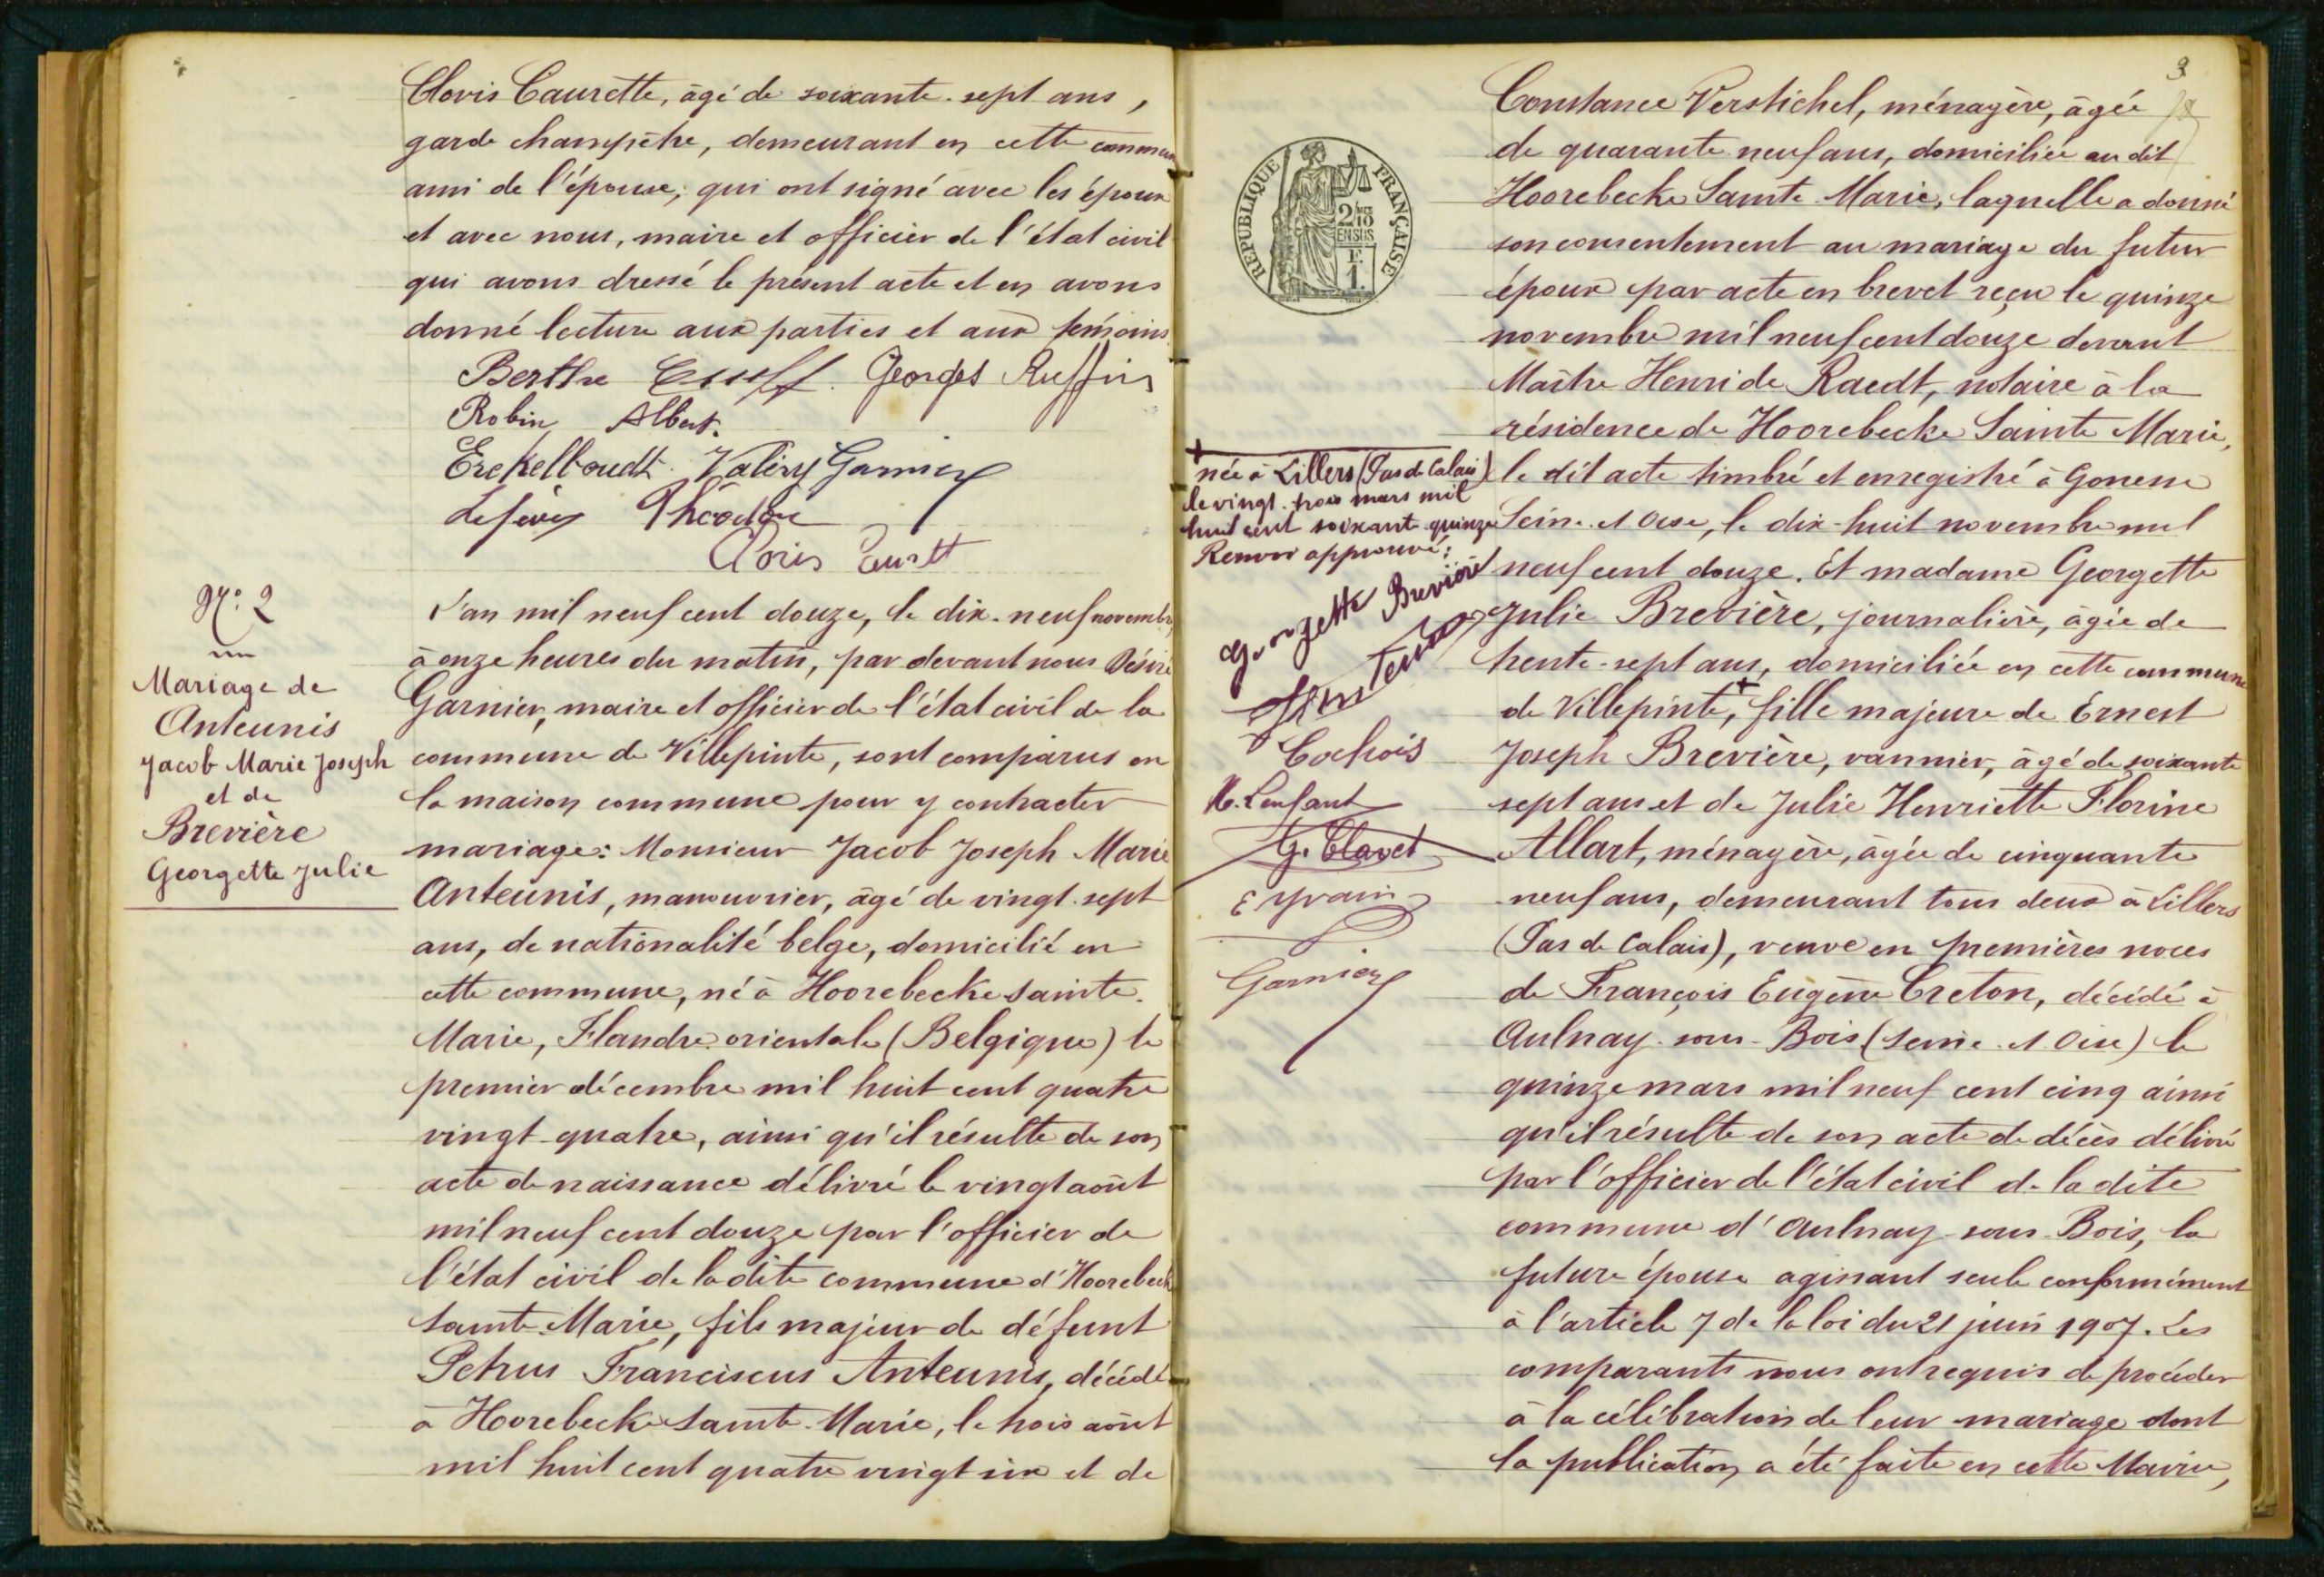 Clovis Caurette, âgé de soixante-sept ans,
garde champêtre, demeurant en cette commune
ami de l'épouse; qui ont signé avec les époux
et avec nous, maire et officier de l'état civil
qui avons dressé le présent acte et en avons
donné lecture aux parties et aux témoins
Berthe Georges Ruffin
Robin Albert.
Erckelboudt Valéry Garnier
Lefèvre Théodore
Clovis Caurett
No: 2
Mariage de
Anteunis
Jacob Marie Joseph
et de
Brevière
Georgette Julie
L'an mil neuf cent douze, le dix-neuf novembre
à onze heures du matin, par devant nous Désiré
Garnier, maire et officier de l'état civil de la
commune de Villepinte, sont comparus en
la maison commune pour y contracter
mariage: Monsieur Jacob Joseph Marie
Anteunis, manouvrier, âgé de vingt-sept
ans, de nationalité belge, domicilié en
cette commune, né à Hoorebecke Sainte-
Marie, Flandre orientale (Belgique) le
premier décembre mil huit cent quatre
vingt-quatre, ainsi qu'il résulte de son
acte de naissance délivré le vingt août
mil neuf cent douze par l'officier de
l'état civil de la dite commune d'Hoorebecke
Sainte-Marie, fils majeur de défunt
Petrus Franciscus Anteunis, décédé
à Hoorebecke Sainte-Marie, le trois août
mil huit cent quatre vingt six et de
3
REPUBLIQUE FRANÇAISE
2/10 EN SUS
F.
1.
Constance Verstichel, ménagère, âgée
de quarante neuf ans, domiciliée au dit
Hoorebecke Sainte-Marie, laquelle a donné
son consentement au mariage du futur
époux par acte en brevet reçu le quinze
novembre mil neuf cent douze devant
Maître Henri de Raedt, notaire à la
résidence de Hoorebecke Sainte Marie,
le dit acte timbré et enregistré à Gonesse
Seine-et-Oise, le dix-huit novembre mil
neuf cent douze. Et madame Georgette
Julie Brevière, journalière, âgée de
trente-sept ans, domiciliée en cette commune
de Villepinte, + fille majeure de Ernest
Joseph Brevière, vannier, âgé de soixante
sept ans et de Julie Henriette Florine
Allart, ménagère, âgée de cinquante
neuf ans, demeurant tous deux à Lillers
(Pas de Calais), veuve en premières noces
de François Eugène Creton, décédé à
Aulnay-sous-Bois (Seine-et-Oise) le
quinze mars mil neuf cent cinq ainsi
qu'il résulte de son acte de décès délivré
par l'officier de l'état civil de la dite
commune d'Aulnay-sous-Bois, la
future épouse agissant seule conformément
à l'article 7 de la loi du 21 juin 1907. Les
comparants nous ont requis de procéder
à la célébration de leur mariage dont
la publication a été faite en cette Mairie,
+
née à Lillers (Pas de Calais)
le vingt-trois mars mil
huit cent soixante-quinze
Renvoi approuvé:
Georgette Brevière
Cochois
H. Lenfant
G. Clavet
E Yvain
Garnier